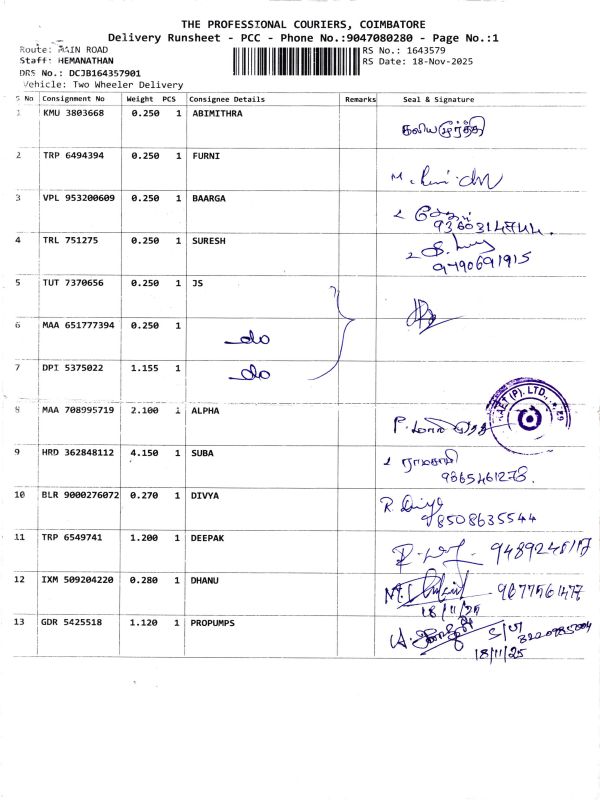 THE PROFESSIONAL COURIERS, COIMBATORE
Delivery Runsheet - PCC - Phone No.:9047080280 - Page No.:1
Route: MAIN ROAD RS No.: 1643579
Staff: HEMANATHAN RS Date: 18-Nov-2025
DRS No.: DCJB164357901
Vehicle: Two Wheeler Delivery
S No Consignment No Weight PCS Consignee Details Remarks Seal & Signature
1 KMU 3803668 0.250 1 ABIMITHRA
கலியமூர்த்தி
2 TRP 6494394 0.250 1 FURNI
3 VPL 953200609 0.250 1 BAARGA
9360314744.
4 TRL 751275 0.250 1 SURESH
9790691915
5 TUT 7370656 0.250 1 JS
6 MAA 651777394 0.250 1 do
7 DPI 5375022 1.155 1 do
8 MAA 708995719 2.100 1 ALPHA
(P). LTD.,
9 HRD 362848112 4.150 1 SUBA
9865461278.
10 BLR 9000276072 0.270 1 DIVYA
R. Divya
98508635544
11 TRP 6549741 1.200 1 DEEPAK
12 IXM 509204220 0.280 1 DHANU
18/11/25
13 GDR 5425518 1.120 1 PROPUMPS
18/11/25